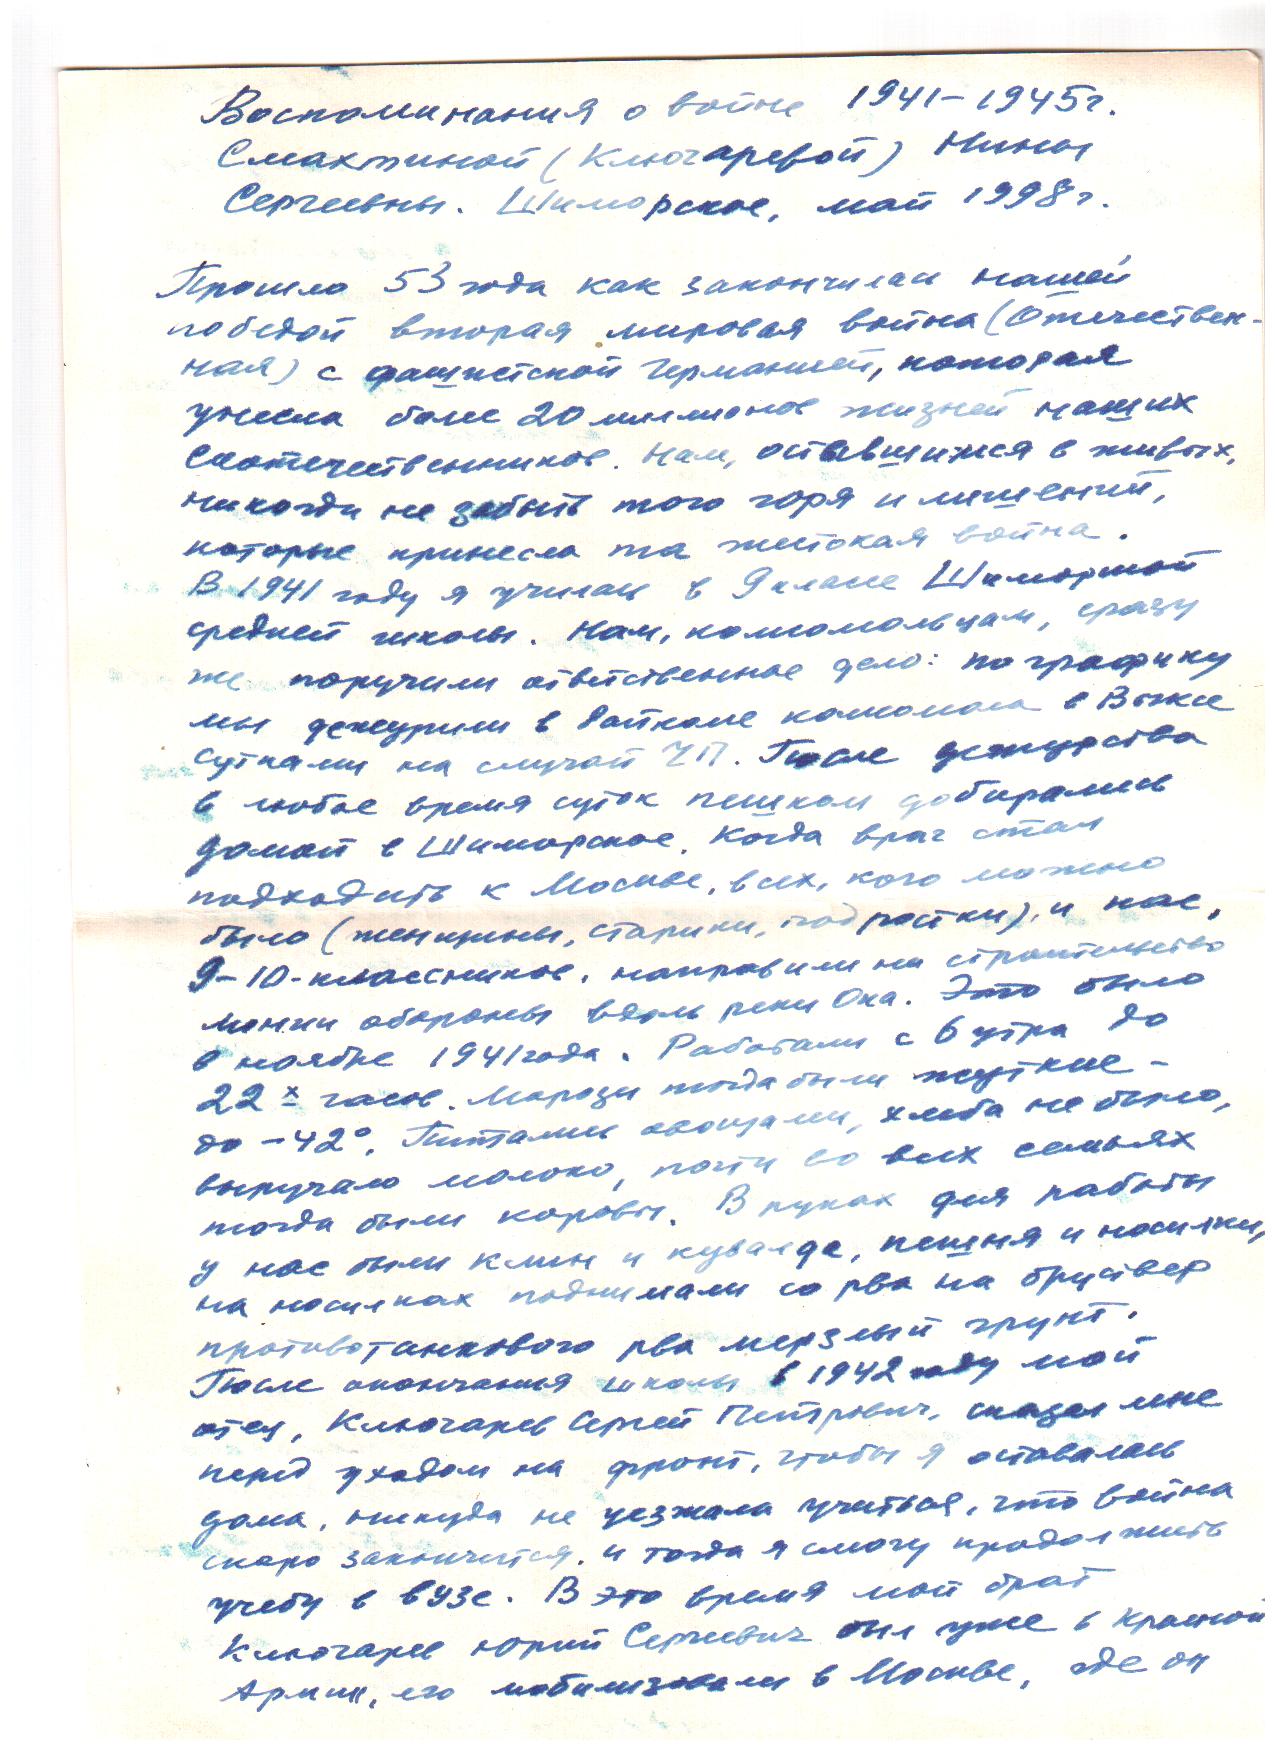 Воспоминания о войне 1941–1945г.
Смахтиной (Ключаревой) Нины
Сергеевны. Шиморское, май 1998г.
Прошло 53 года как закончилась нашей
победой вторая мировая война (Отечествен-
ная) с фашистской Германией, которая
унесла более 20 миллионов жизней наших
соотечественников. Нам, оставшимся в живых,
никогда не забыть того горя и лишений,
которые принесла та жестокая война.
В 1941 году я училась в 9 классе Шиморской
средней школы. Нам, комсомольцам, сразу
же поручили ответственное дело: по графику
мы дежурили в райкоме комсомола в Выксе
сутками на случай ЧП. После дежурства
в любое время суток пешком добирались
домой в Шиморское. Когда враг стал
подходить к Москве, всех, кого можно
было (женщины, старики, подростки), и нас,
9–10-классников, направили на строительство
линии обороны вдоль реки Ока. Это было
в ноябре 1941 года. Работали с 6 утра до
22х часов. Морозы тогда были жуткие –
до –42°. Питались овощами, хлеба не было,
выручало молоко, почти во всех семьях
тогда были коровы. В руках для работы
у нас были клин и кувалда, пешня и носилки,
на носилках поднимали со рва на бруствер
противотанкового рва мерзлый грунт.
После окончания школы в 1942 году мой
отец, Ключарев Сергей Петрович, сказал мне
перед уходом на фронт, чтобы я оставалась
дома, никуда не уезжала учиться, что война
скоро закончится, и тогда я смогу продолжить
учебу в вузе. В это время мой брат
Ключарев Юрий Сергеевич был уже в Красной
Армии, его мобилизовали в Москве, где он